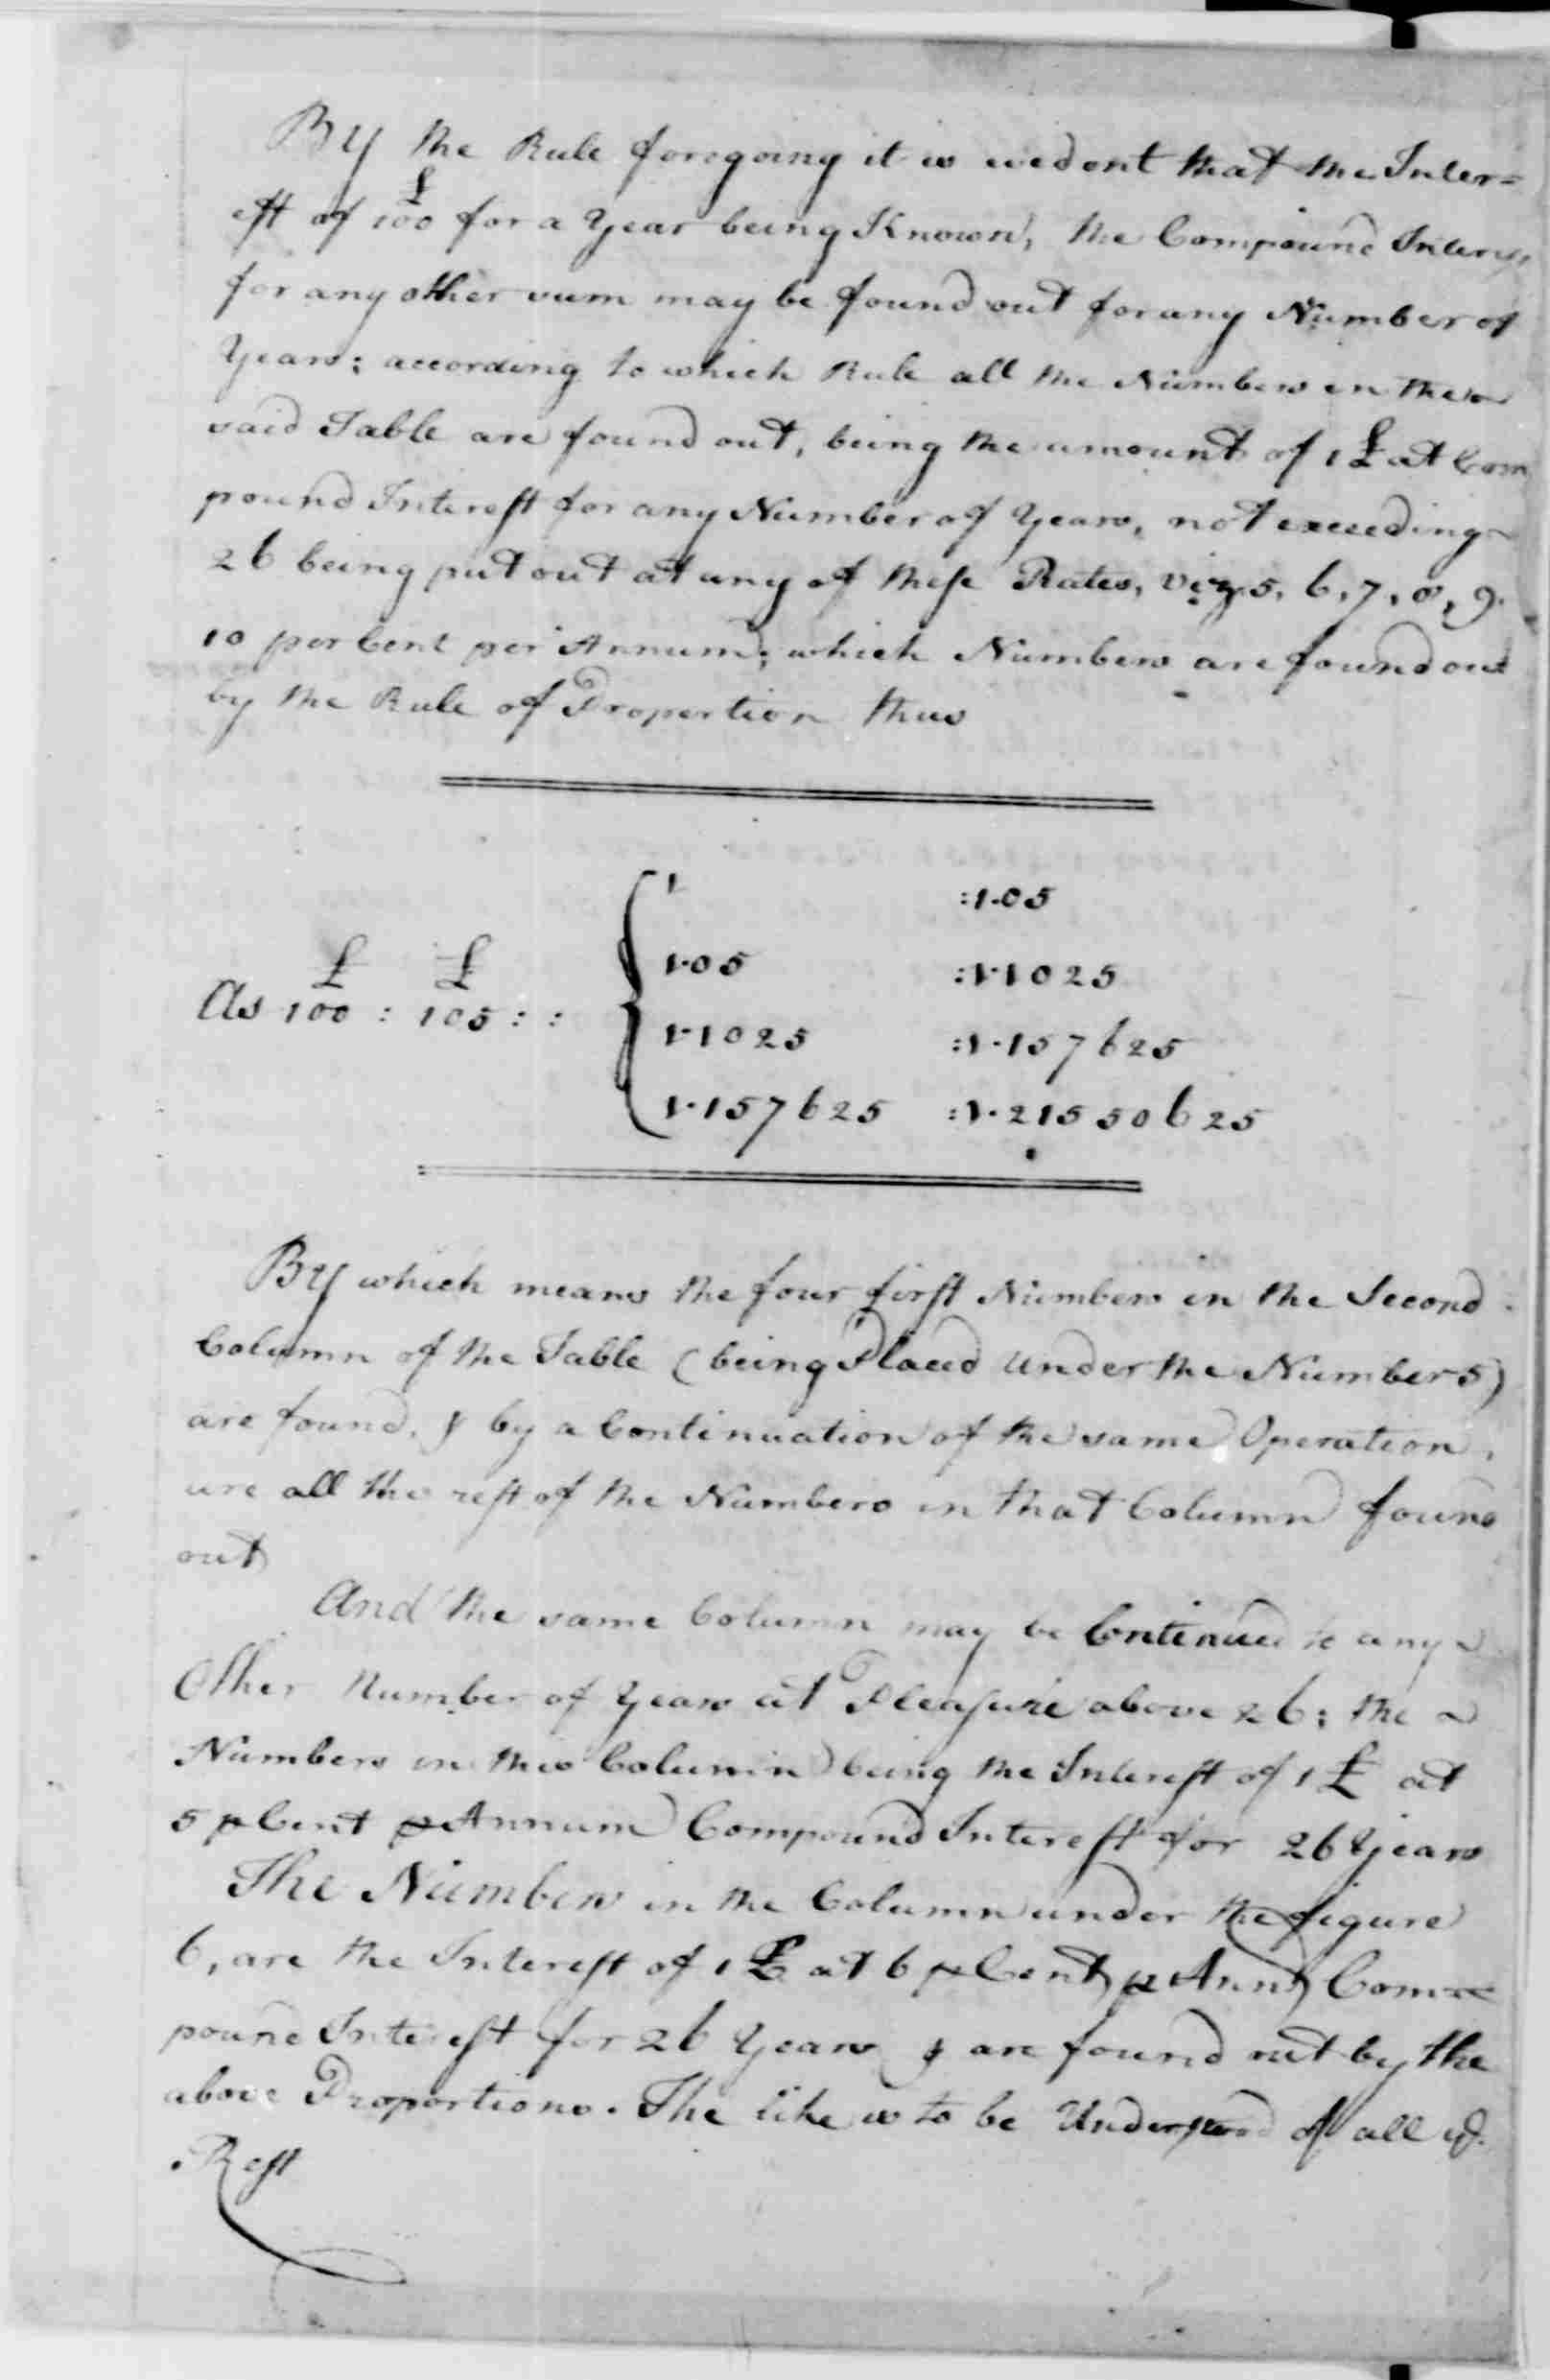 By the Rule foregoing it is evedent that the Inter=
est of £100 for a Year being Known, the Compound Interest
for any other sum may be found out for any Number of
Years; according to which Rule all the Numbers in the
said Table are found out, being the amount of 1£ at Com
pound Interest for any Number of Years, not exceeding
26 being put out at any of these Rates, viz. 5, 6, 7, 8, 9.
10 per Cent per Annum; which Numbers are found out
by the Rule of Proportion thus
1 :1.05
1.05 :1.1025
£ £
As 100 : 105 : :
1.1025 :1.157625
1.157625 :1.21550625
By which means the four first Numbers in the Second
Column of the Table (being Placed Under the Number 5)
are found, & by a Continuation of the same Operation,
are all the rest of the Numbers in that Column found
out
And the same Column may be Continued to any
Other Number of Years at Pleasure above 26; the
Numbers in this Column being the Interest of 1£ at
5 p Cent p Annum Compound Interest for 26 Years
The Numbers in the Column under the figure
6, are the Interest of 1£ at 6 p Cent p Ann Com=
pound Interest for 26 Years & are found out by the
above Proportions. The like is to be Understood of all ye.
Rest